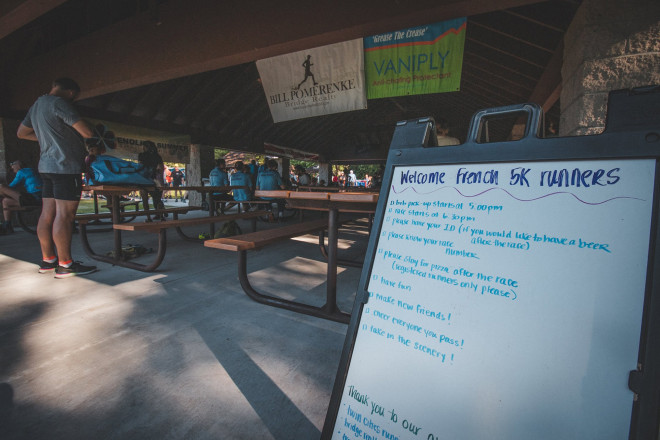 "Grease The Crease"
VANIPLY
Anti-Chafing Protectant
BILL POMERENKE
Welcome French 5K runners
bib pick-up starts at 5:00pm
race starts at 6:30pm
please have your I.D (if you would like to have a beer
after the race)
please know your race
number.
please stay for pizza after the race
(registered runners only please)
have fun
make new friends!
cheer everyone you pass!
take in the scenery!
Thank you to our
twin cities